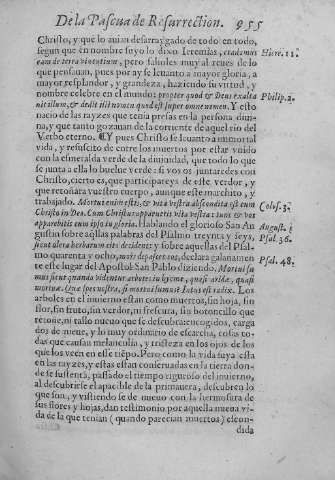 De la Pascua de Resurrection. 955
Christo, y que lo auian desarraygado de todo en todo,
segun que en nombre suyo lo dixo Ieremias, eradamus Hiere. 11.
eam de terra viuentium, pero salioles muy al reues de lo
que pensauan, pues por ay se leuanto a mayor gloria, a
mayor resplandor, y grandeza, haziendo su virtud, y
nombre celebre en el mundo: propter quod & Deus exalta Philip. 2.
uit illum, & dedit illi nomen quod est super omne nomen. Y esto
nacio de las rayzes que tenia presas en la persona diui-
na, y que tanto gozauan de la corriente de aquel rio del
Verbo eterno. Y pues Christo se leuanto a inmortal
vida, y resuscito de entre los muertos por estar vnido
con la esmeralda verde de la diuinidad, que todo lo que
se junta a ella lo buelue verde: si vos os juntaredes con
Christo, cierto es, que participareys de este verdor, y
que retoñara vuestro cuerpo, aunque este muchito, y
trabajado. Mortui enim estis, & vita vestra abscondita est cum
Christo in Deo. Cum Christus apparuerit vita vestra: tunc & vos Colos. 3.
apparebitis cum ipso in gloria. Hablando el glorioso San Au
gustin sobre aqllas palabras del Psalmo treynta y seys, August. i
sicut olera herbarum cito decident: y sobre aquellas del Psal- Psal. 36.
mo quarenta y ocho, mors depascet eos, declara galanamen
te este lugar del Apostol San Pablo diziendo. Mortui su Psal. 48.
mus sicut quando videntur arbores in hyeme, quasi aridæ, quasi
mortuæ. Quæ spes nostra, si mortui sumus? Intus est radix. Los
arboles en el inuierno estan como muertos, sin hoja, sin
flor, sin fruto, sin verdor, ni frescura, sin botoncillo que
retoñe, ni tallo nueuo que se descubra: encogidos, carga
dos de nieue, y lo muy ordinario de escarcha, cosas to-
das que causan melancolia, y tristeza en los ojos de los
que los veen en este tiẽpo. Pero como la vida suya esta
en las rayzes, y estas estan conseruadas en la tierra don-
de se sustenta, passado el tiempo riguroso del inuierno,
al descubrirse el apacible de la primauera, descubren lo
que son, y vistiendo se de nueuo con la hermosura de
sus flores y hojas, dan testimonio por aquella nueua vi-
da de la que tenian (quando parecian muertos) escon-
dida